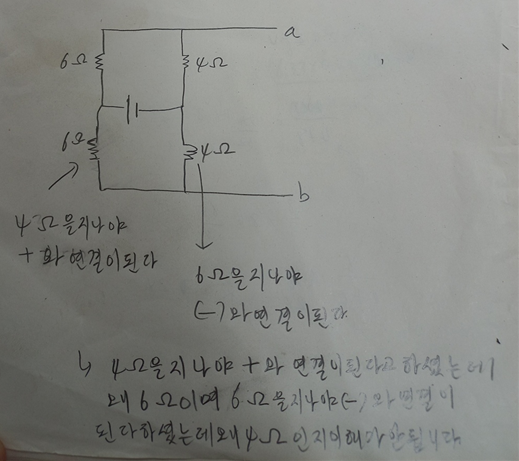 a
6Ω
4Ω
6Ω
4Ω
b
4Ω을지나야
+ 와 연결이된다
6Ω을지나야
(-)와연결이된다
↳ 4Ω을지나야 + 와 연결이된다고하셨는데
왜 6Ω이며 6Ω을지나야(-)와연결이
된다하셨는데왜4Ω인지이해가안됩니다